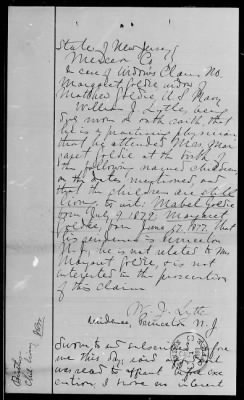 State of New Jersey
Mercer Co
In case of Widows Claim No.
Margaret Goldie widow of
Matthew Goldie U.S. Navy
William J. Lytle, being
duly sworn on oath saith that
he is a practicing physician
that he attended Mrs. Mar-
garet Goldie at the birth of
the following named children
on the dates mentioned, and
that the children are still
living, to wit: Mabel Goldie
born July 9, 1879. Margaret
Goldie, born June 1877. that
his residence is Princeton
N.J., he is not related to Mrs
Margaret Goldie, or is not
interested in the prosecution
of this claim
W. J. Lytle
residence, Princeton N.J
Sworn to and subscribed before
me this day, and
was read to affiant before exe-
cution, I have no interest